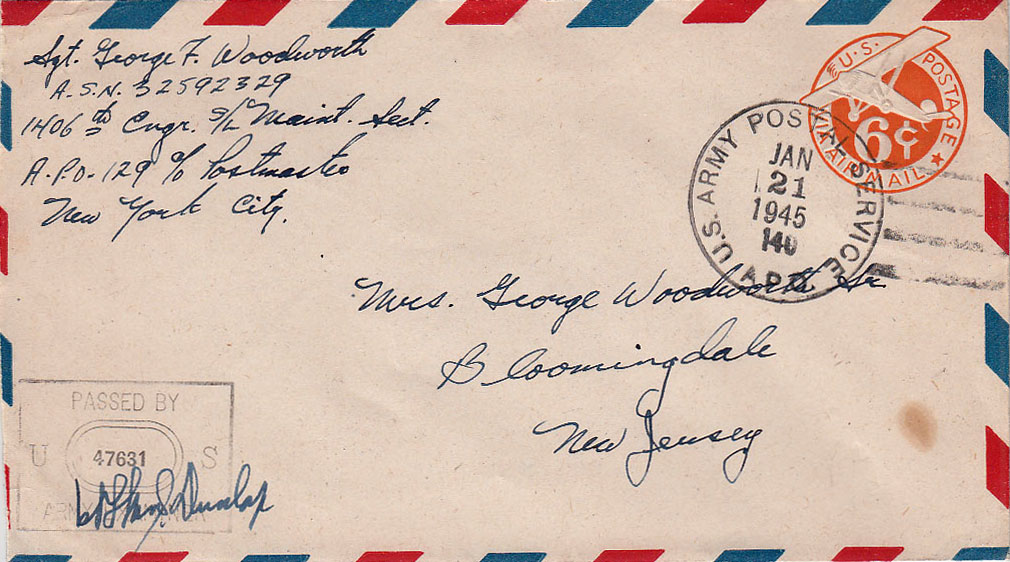 Sgt. George F. Woodworth
A.S.N. 32592329
1406 th Engr. S/L Maint. Sect.
A.P.O. 129 c/o Postmaster
New York City.
U.S. POSTAGE
6¢
VIA AIR MAIL
U.S. ARMY POSTAL SERVICE
JAN
21
1945
140
A.P.O.
Mrs. George Woodworth Sr
Bloomingdale
New Jersey
PASSED BY
U 47631 S
ARMY EXAMINER
Dunlap